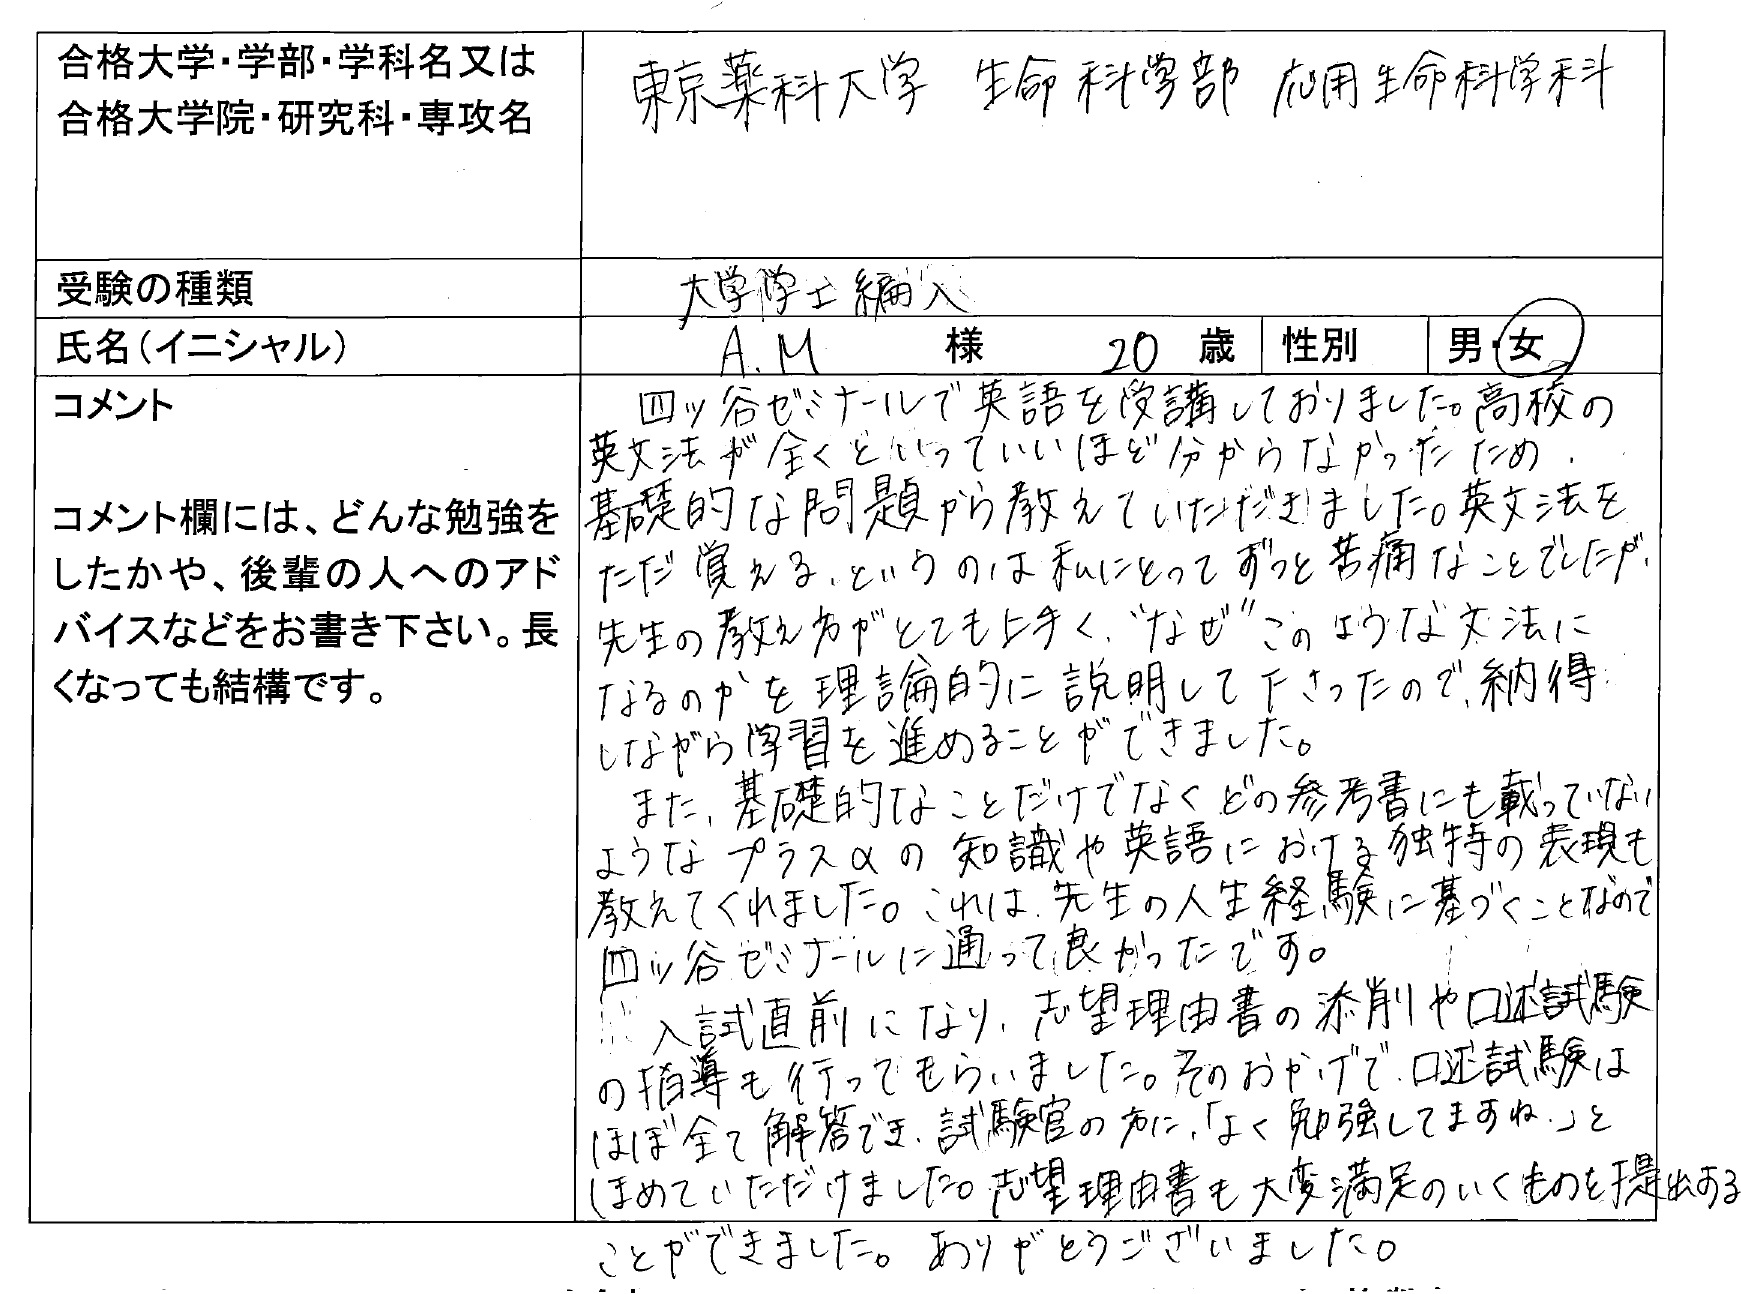 合格大学・学部・学科名又は
合格大学院・研究科・専攻名
東京薬科大学 生命科学部 応用生命科学科
受験の種類
大学学士編入
氏名(イニシャル)
A.M 様 20 歳 性別 男・女
コメント
コメント欄には、どんな勉強を
したかや、後輩の人へのアド
バイスなどをお書き下さい。長
くなっても結構です。
四ッ谷ゼミナールで英語を受講しておりました。高校の
英文法が全くといっていいほど分からなかったため、
基礎的な問題から教えていただきました。英文法を
ただ覚える、というのは私にとってずっと苦痛なことでしたが、
先生の教え方がとても上手く、“なぜ”このような文法に
なるのかを理論的に説明して下さったので、納得
しながら学習を進めることができました。
また、基礎的なことだけでなくどの参考書にも載っていない
ようなプラスαの知識や英語における独特の表現も
教えてくれました。これは、先生の人生経験に基づくことなので
四ッ谷ゼミナールに通って良かったです。
入試直前になり、志望理由書の添削や口述試験
の指導も行ってもらいました。そのおかげで、口述試験は
ほぼ全て解答でき、試験官の方に、「よく勉強してますね。」と
ほめていただけました。志望理由書も大変満足のいくものを提出する
ことができました。ありがとうございました。